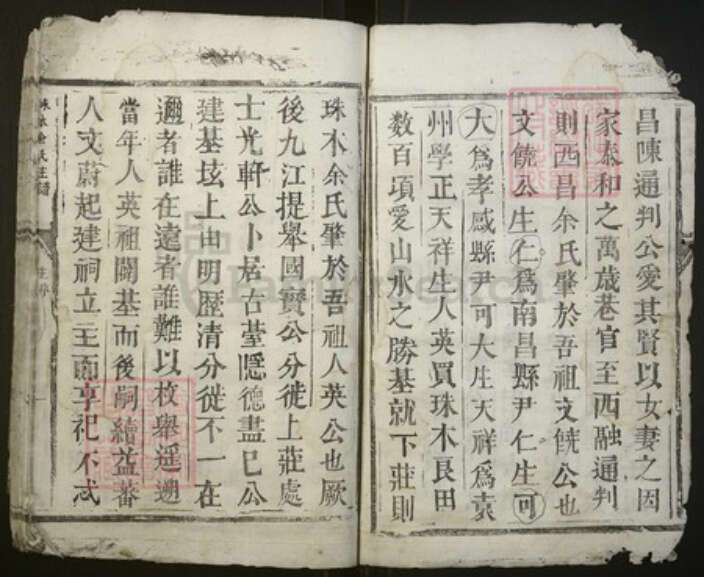 昌陳通判公愛其賢以女妻之因
家泰和之萬歲巷官至西融通判
則西昌余氏肇於吾祖文饒公也
文饒公生仁為南昌縣尹仁生可
大為孝感縣尹可大生天祥為袁
州學正天祥生人英買珠木良田
數百頃愛山水之勝基就下莊則
珠木余氏肇於吾祖人英公也厥
後九江提舉國寶公分徙上莊處
士光軒公卜居古塟隱德盡已公
建基坺上由明歷清分徙不一在
邇者誰在遠者誰難以枚舉遥遡
當年人英祖闢基而後嗣續益蕃
人文蔚起建祠立主而享祀不忒
珠木余氏主譜
主序
FamilySearch